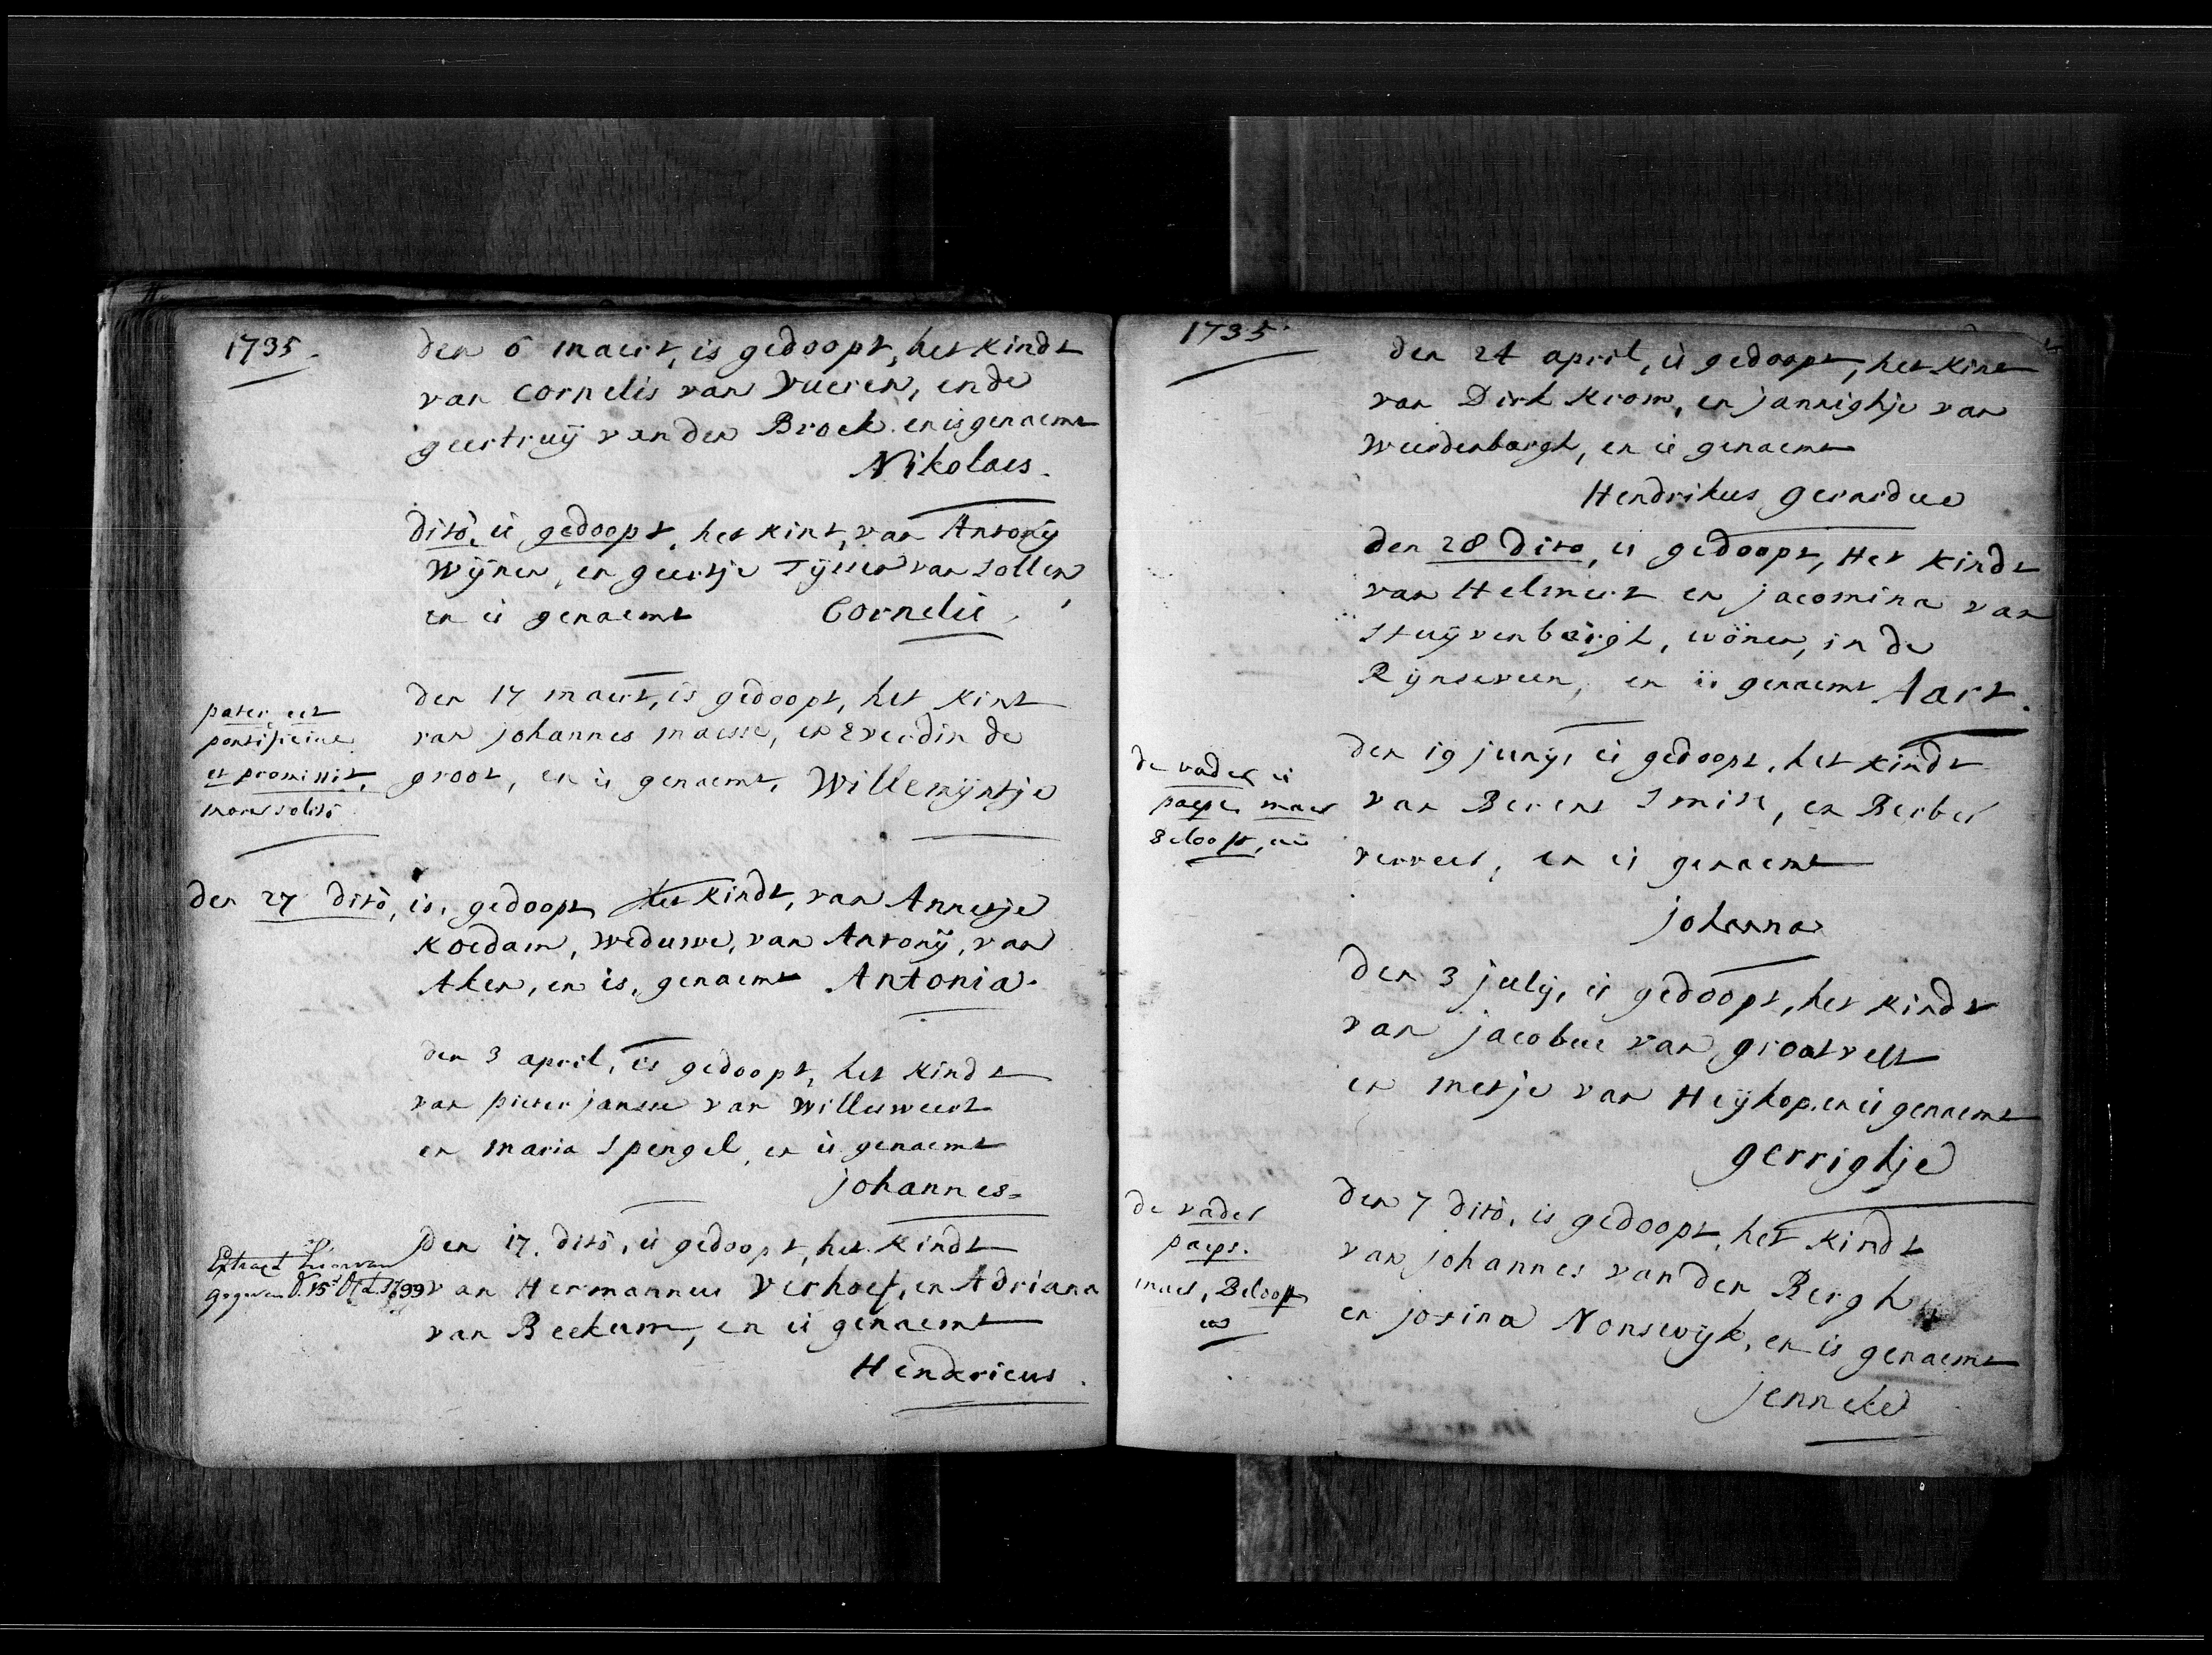 1735.
den 6 maert, is gedoopt, het kindt
van Cornelis van Vueren, ende
geertruÿ van den Broek en is genaemt
Nikolaes.
ditö, is gedoopt, het kint, van Antonÿ
Wÿnen, en geertje Tÿssen van Sollen,
en is genaemt Cornelis.
den 17 maert, is gedoopt, het kint
van johannes maesse, en Everdin de
groot, en is genaemt, Willemÿntje
pater est
pontificius
et promissit,
more solitö
den 27 ditö, is, gedoopt het kindt, van Annetje
Koedam, weduwe, van Antonÿ, van
Aken, en is, genaemt Antonia.
den 3 april, is gedoopt, het kindt
van pieter jansse van Willeweert
en maria Spengel, en is genaemt
johannes
den 17. ditö, is gedoopt, het kindt
van Hermannus Verhoef, en Adriana
van Beekum, en is genaemt
Hendericus.
Extract hiervan
gegeven d. 15 1799
1735.
den 24 april, is gedoopt, het kint
van Dirk Krom, en jannighje van
Weerdenburgh, en is genaemt
Hendrikus gerardus
den 28 dito, is gedoopt, Het kindt
van Helmert en jacomina van
Stuÿvenbürgh, wönen, in de
Rÿnseveen, en is genaemt Aart.
den 19 junÿ, is gedoopt, het kindt
van Berent Smitt, en Berbel
verveet, en is genaemt
johanna
de vader is
paeps maer
Belooft, als
den 3 julÿ, is gedoopt, het kindt
van jacobus van grootvelt
en metje van Heÿkop. en is genaemt
gerrighje
den 7 ditö, is gedoopt, het kindt
van johannes van den Bergh
en josina Nonswÿk, en is genaemt
jenneke
de vader
paeps.
maer, Belooft
als